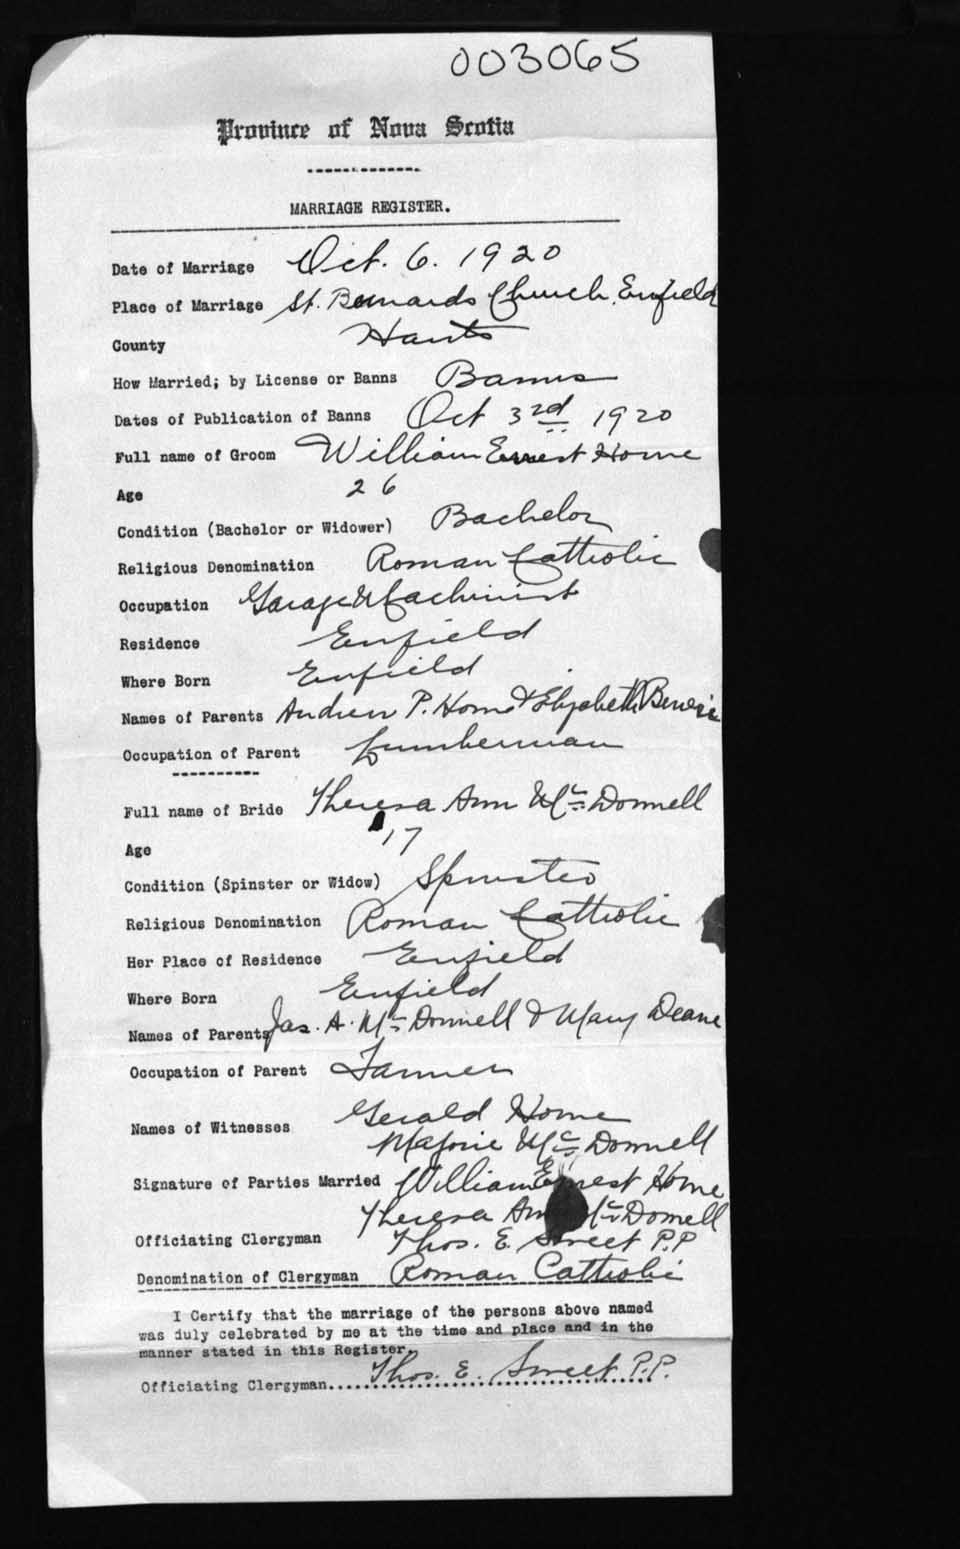 003065
Province of Nova Scotia
MARRIAGE REGISTER.
Date of Marriage Oct. 6. 1920
Place of Marriage St. Bernards Church, Enfield
County Hants
How Married; by License or Banns Banns
Dates of Publication of Banns Oct 3rd 1920
Full name of Groom William Ernest Horne
Age 26
Condition (Bachelor or Widower) Bachelor
Religious Denomination Roman Catholic
Occupation Garage Machinist
Residence Enfield
Where Born Enfield
Names of Parents Andrew P. Horne & Elizabeth
Occupation of Parent Lumberman
Full name of Bride Theresa Ann Mc Donnell
Age 17
Condition (Spinster or Widow) Spinster
Religious Denomination Roman Catholic
Her Place of Residence Enfield
Where Born Enfield
Names of Parents Jas. A. Mc Donnell & Mary Deane
Occupation of Parent Farmer
Names of Witnesses Gerald Horne
Marjorie Mc Donnell
Signature of Parties Married William Ernest Horne
Theresa Ann Mc Donnell
Officiating Clergyman Thos. E. Sweet P.P
Denomination of Clergyman Roman Catholic
I Certify that the marriage of the persons above named
was duly celebrated by me at the time and place and in the
manner stated in this Register.
Officiating Clergyman Thos. E. Sweet P.P.